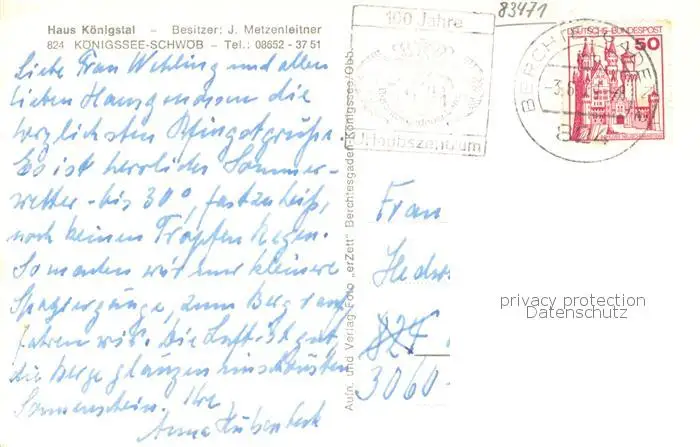 Haus Königstal – Besitzer: J. Metzenleitner
824 KÖNIGSSEE-SCHWÖB – Tel.: 08652 - 37 51
Liebe Frau Wehling und allen
lieben Hausgenossen die
herzlichsten Pfingstgrüße.
Es ist herrliches Sommer-
wetter - bis 30°, fast zu heiß,
noch keinen Tropfen Regen.
So machen wir nur kleinere
Spaziergänge, zum Berg rauf
fahren wir. Die Luft ist gut,
die Berge glänzen im schönsten
Sonnenschein. Ihre
Anna
Aufn. und Verlag Foto „erZett" Berchtesgaden-Königssee/Obb.
100 Jahre
83471
BERCH
-3.6
824
DEUTSCHE BUNDESPOST
50
Frau
Hedw
824
3060
privacy protection
Datenschutz